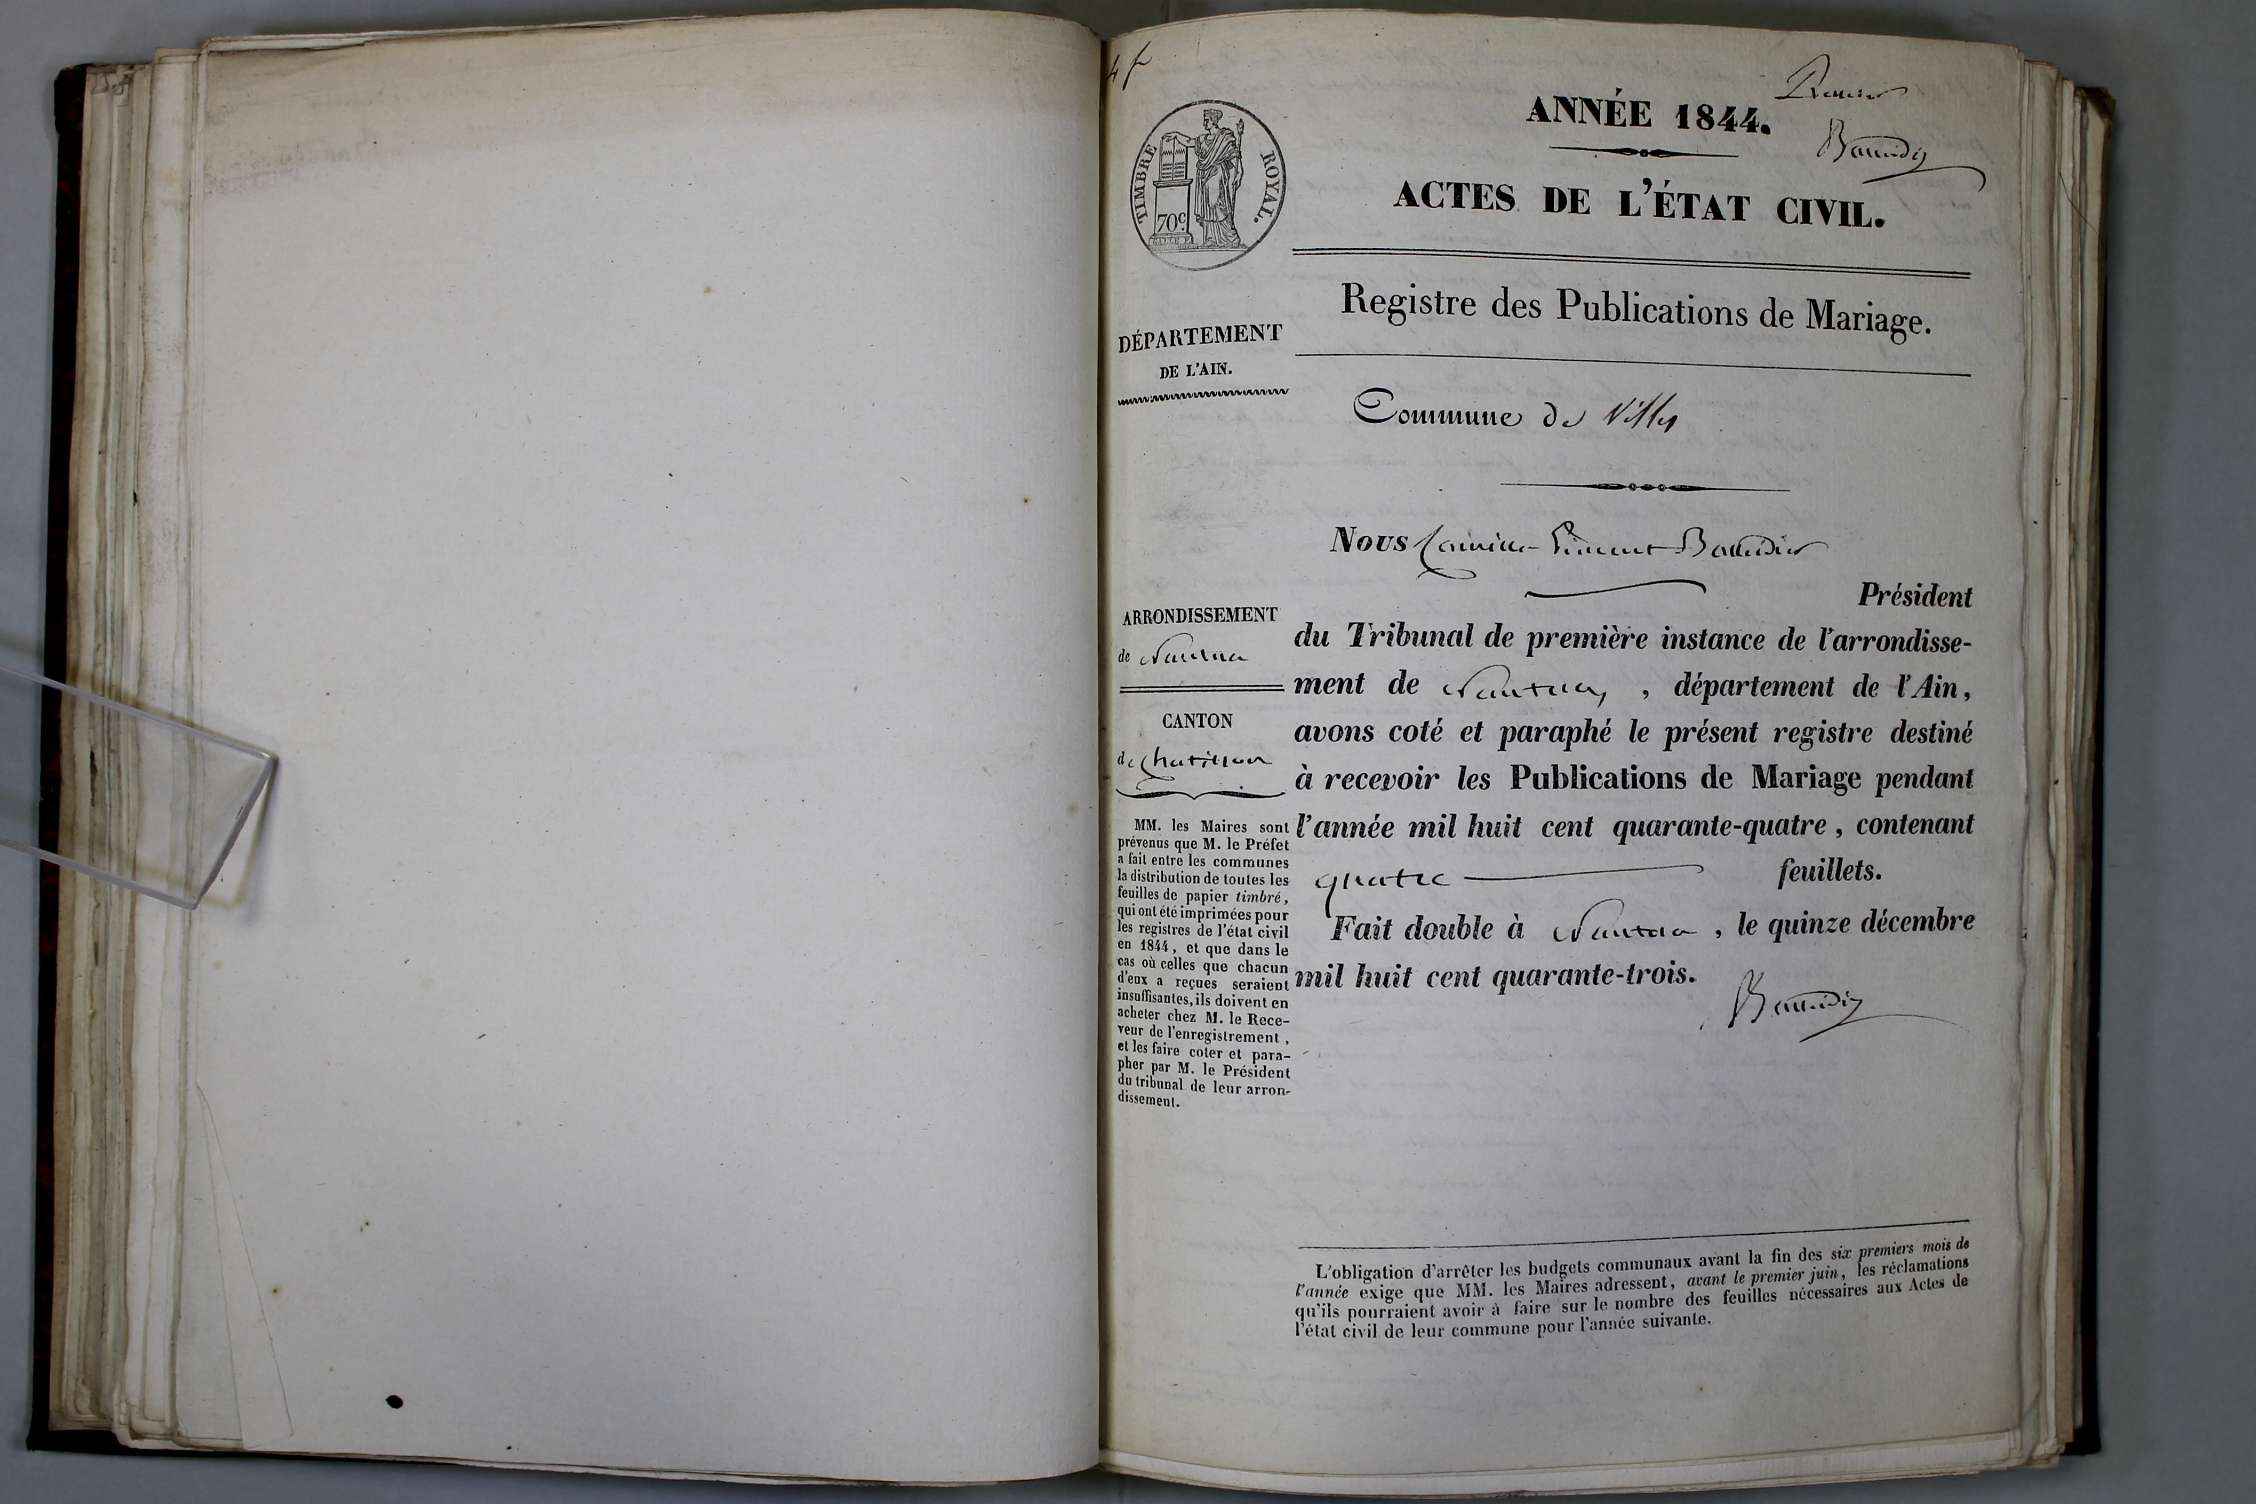 4 f
ANNÉE 1844.
ACTES DE L'ÉTAT CIVIL.
TIMBRE ROYAL.
70c.
Registre des Publications de Mariage.
DÉPARTEMENT
DE L'AIN.
Commune de Villes
Nous
Président
du Tribunal de première instance de l'arrondisse-
ment de Nantua, département de l'Ain,
avons coté et paraphé le présent registre destiné
à recevoir les Publications de Mariage pendant
l'année mil huit cent quarante-quatre, contenant
quatre feuillets.
Fait double à Nantua, le quinze décembre
mil huit cent quarante-trois.
ARRONDISSEMENT
de Nantua
CANTON
de Chatillon
MM. les Maires sont
prévenus que M. le Préfet
a fait entre les communes
la distribution de toutes les
feuilles de papier timbré,
qui ont été imprimées pour
les registres de l'état civil
en 1844, et que dans le
cas où celles que chacun
d'eux a reçues seraient
insuffisantes, ils doivent en
acheter chez M. le Rece-
veur de l'enregistrement,
et les faire coter et para-
pher par M. le Président
du tribunal de leur arron-
dissement.
L'obligation d'arrêter les budgets communaux avant la fin des six premiers mois de
l'année exige que MM. les Maires adressent, avant le premier juin, les réclamations
qu'ils pourraient avoir à faire sur le nombre des feuilles nécessaires aux Actes de
l'état civil de leur commune pour l'année suivante.